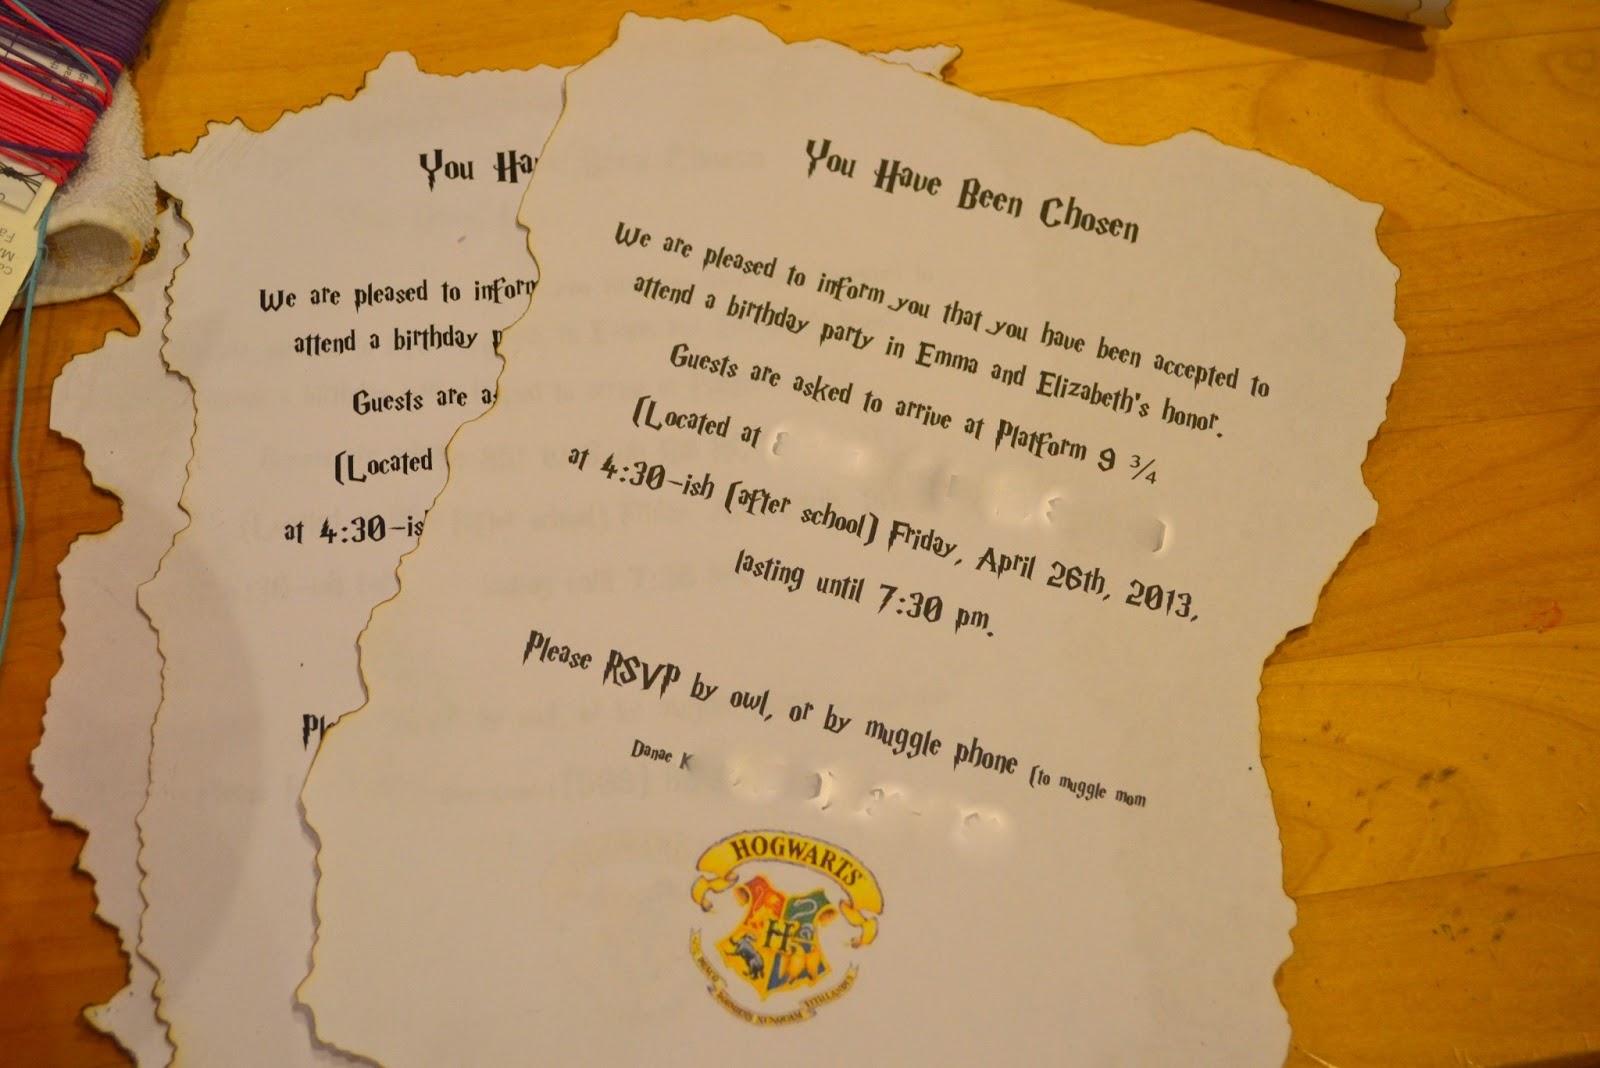 You Have Been Chosen
We are pleased to inform you that you have been accepted to
attend a birthday party in Emma and Elizabeth's honor.
Guests are asked to arrive at Platform 9 ¾
(Located at )
at 4:30-ish (after school) Friday, April 26th, 2013,
lasting until 7:30 pm.
Please RSVP by owl, or by muggle phone (to muggle mom
Danae K
HOGWARTS
H
DRACO DORMIENS NUNQUAM TITILLANDUS
You Ha
We are pleased to inform
attend a birthday p
Guests are as
(Located
at 4:30-is
Pl